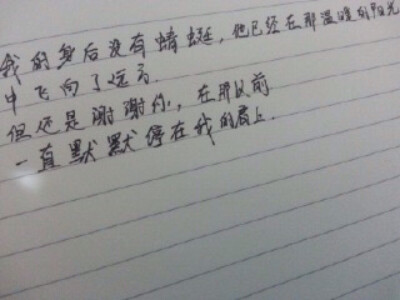 我的身后没有蜻蜓，他已经在那温暖的阳光
中飞向了远方.
但还是谢谢你，在那以前
一直默默停在我的肩上.